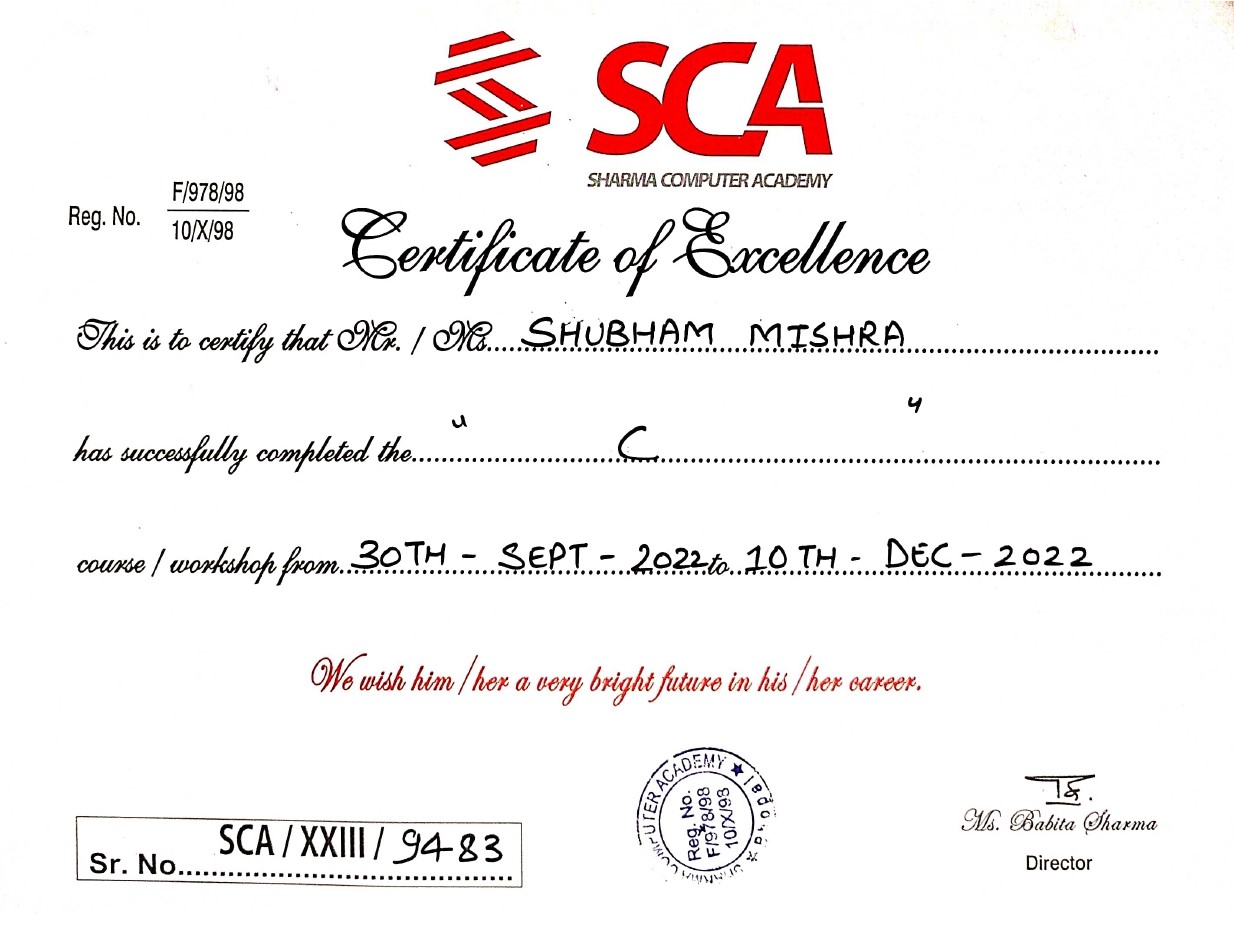 SCA
SHARMA COMPUTER ACADEMY
Reg. No. F/978/98
10/X/98
Certificate of Excellence
This is to certify that Mr. / Ms. SHUBHAM MISHRA
has successfully completed the " C "
course / workshop from 30TH - SEPT - 2022 to 10TH - DEC - 2022
We wish him / her a very bright future in his / her career.
SHARMA COMPUTER ACADEMY ★ Bhopal ★
Reg. No.
F/978/98
10/X/98
Ms. Babita Sharma
Director
Sr. No. SCA / XXIII / 9483